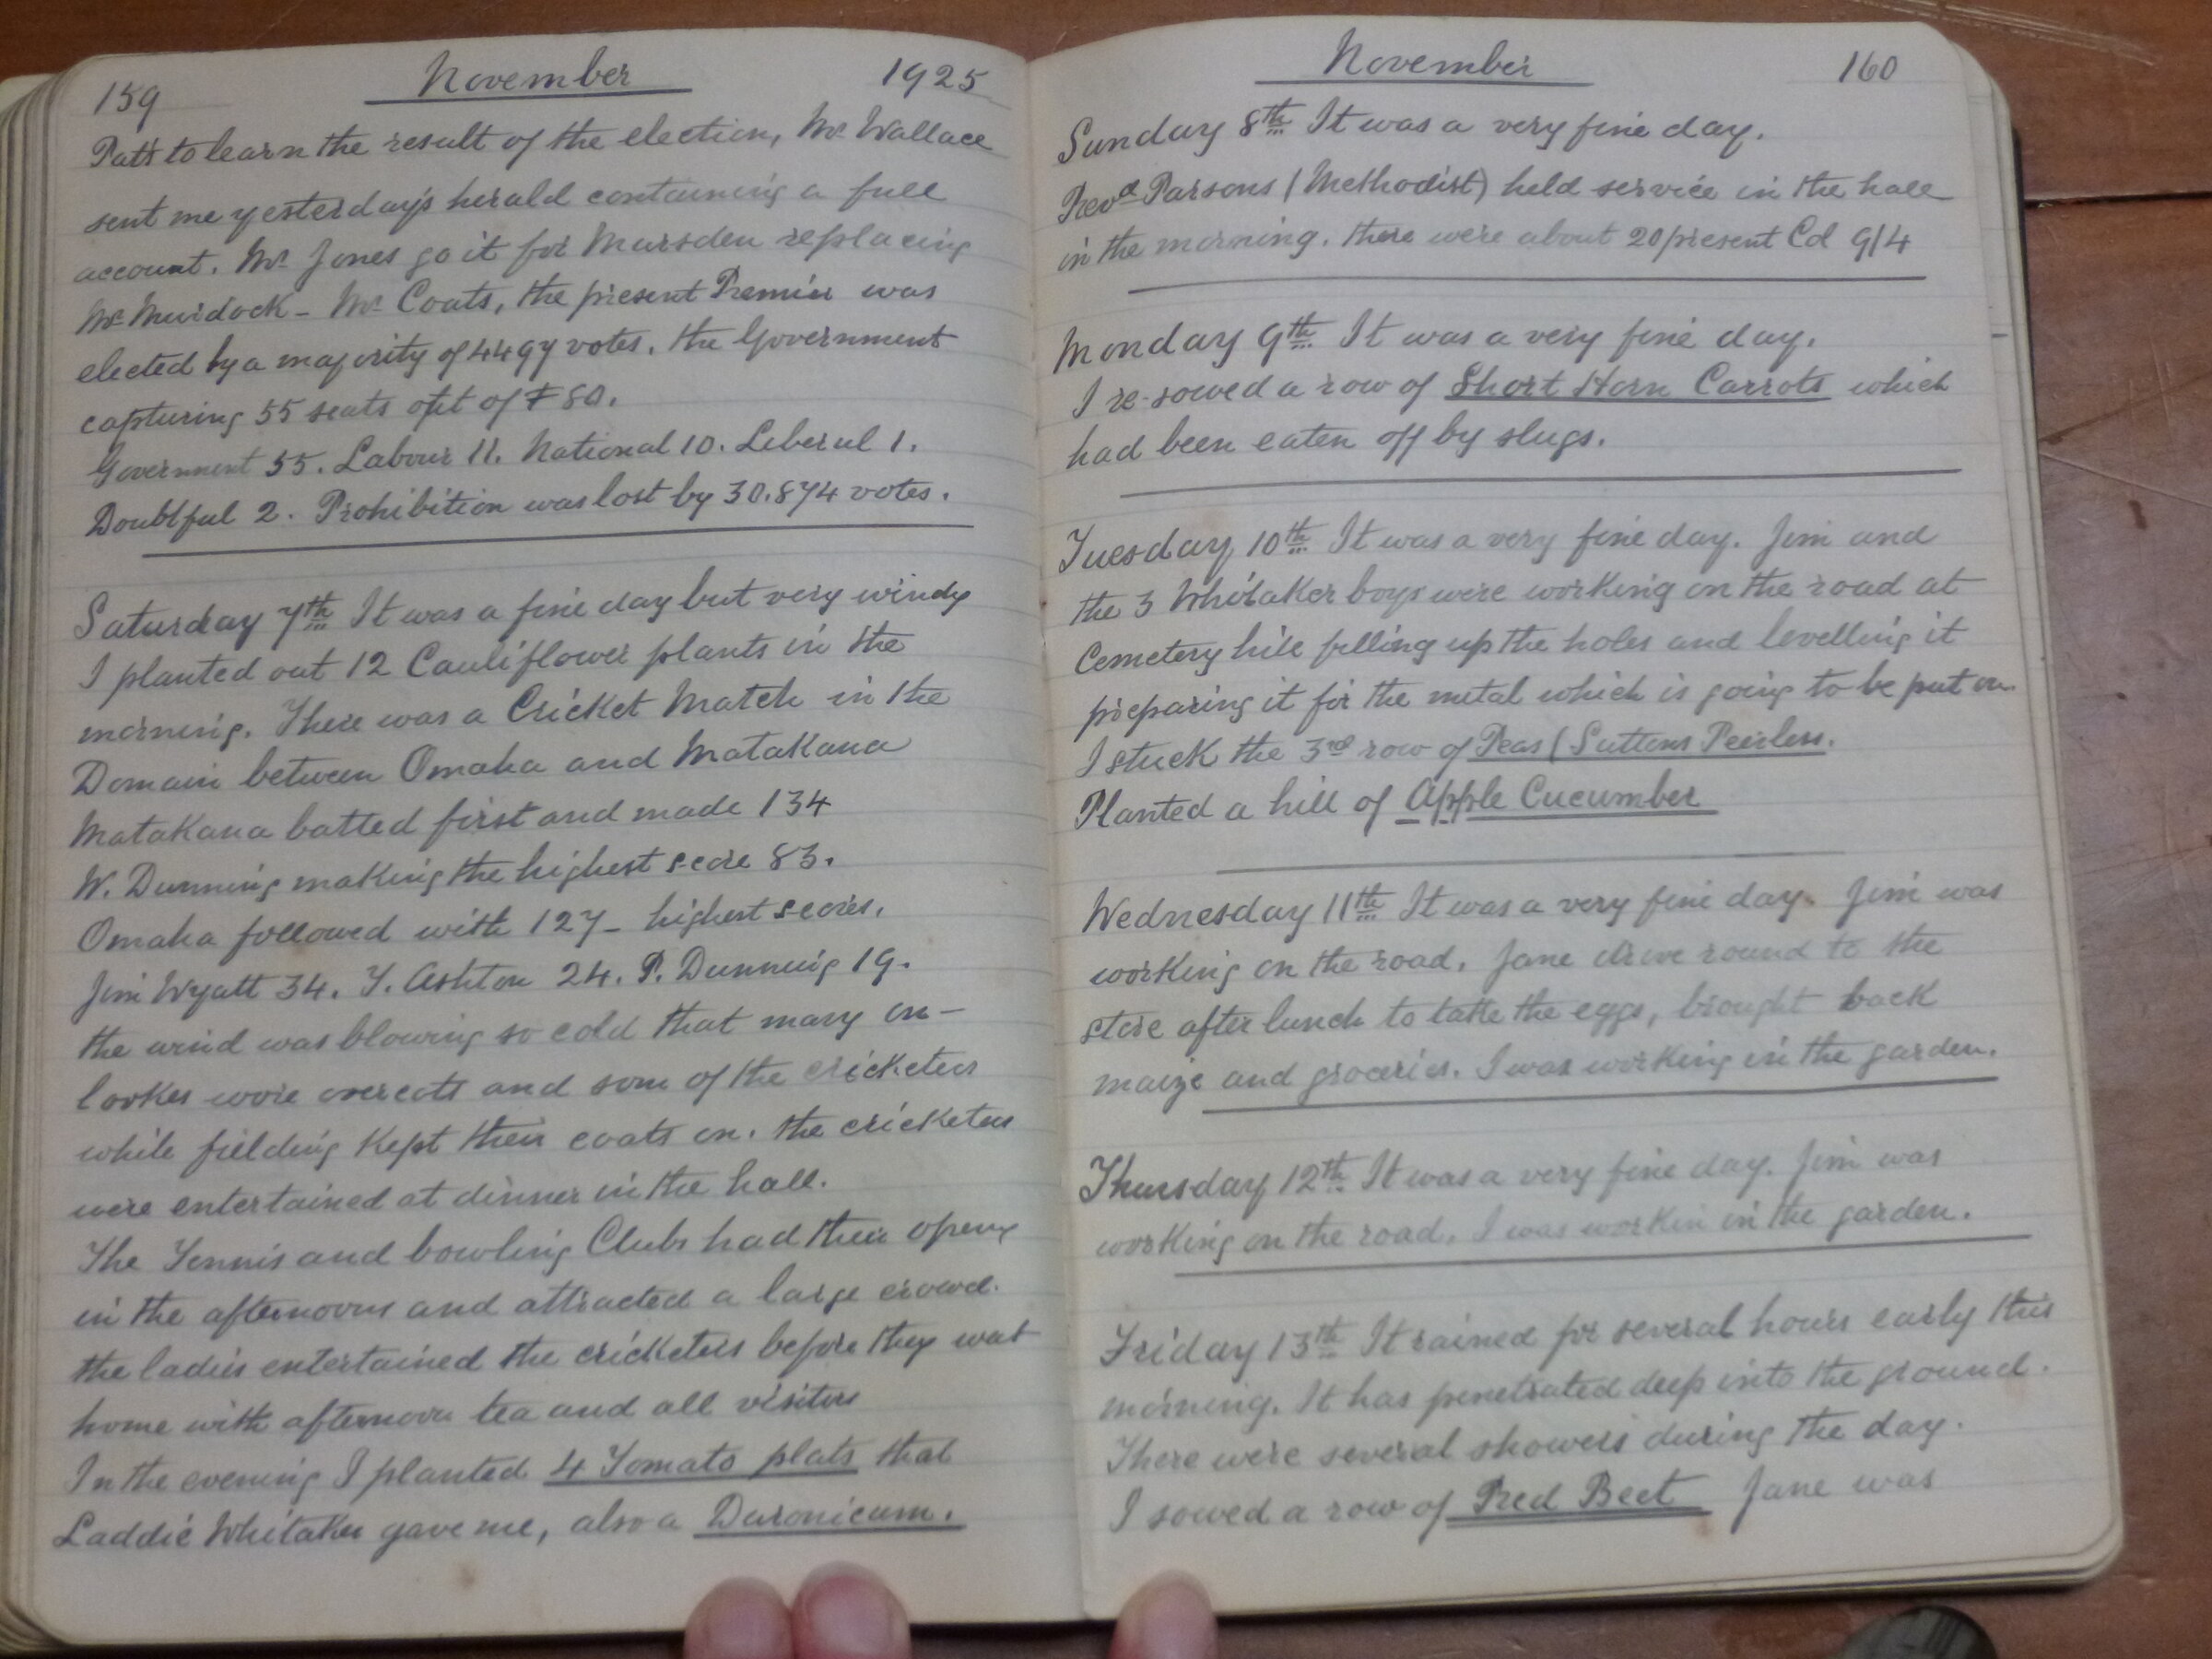 159 November 1925
Patts to learn the result of the election, Mr Wallace
sent me yesterday's herald containing a full
account. Mr Jones go it for Marsden replacing
Mr Murdock – Mr Coats, the present Premier was
elected by a majority of 4497 votes. the Government
capturing 55 seats out of 80.
Government 55. Labour 11. National 10. Liberal 1.
Doubtful 2. Prohibition was lost by 30.874 votes.
Saturday 7th It was a fine day but very windy
I planted out 12 Cauliflower plants in the
morning. There was a Cricket Match in the
Domain between Omaha and Matakana
Matakana batted first and made 134
W. Dunning making the highest score 83.
Omaha followed with 127 – highest scores.
Jim Wyatt 34. T. Ashton 24. P. Dunning 19.
the wind was blowing so cold that many on-
lookes wore overcots and som of the cricketers
while fielding Kept their coats on. the cricketers
were entertained at dinner in the hall.
The Tennis and bowling Clubs had their openg
in the afternoons and attracted a large crowd.
the ladies entertained the cricketers before they wet
home with afternoon tea and all visitors
In the evening I planted 4 Tomato plats that
Laddie Whitaker gave me, also a Duronicum.
November 160
Sunday 8th It was a very fine day.
Revd Parsons (Methodist) held service in the hall
in the morning. there were about 20 present Cd 9/4
Monday 9th It was a very fine day.
I re-sowed a row of Short Horn Carrots which
had been eaten off by slugs.
Tuesday 10th It was a very fine day. Jim and
the 3 Whitaker boys were working on the road at
Cemetery hill filling up the holes and levelling it
preparing it for the metal which is going to be put on.
I stuck the 3rd row of Peas (Suttons Peerless.
Planted a hill of Apple Cucumber
Wednesday 11th It was a very fine day. Jim was
working on the road. Jane drove round to the
store after lunch to take the eggs, brought back
maize and groceries. I was working in the garden.
Thursday 12th It was a very fine day. Jim was
working on the road. I was workin in the garden.
Friday 13th It rained for several hours early this
morning. It has penetrated deep into the ground.
There were several showers during the day.
I sowed a row of Red Beet Jane was